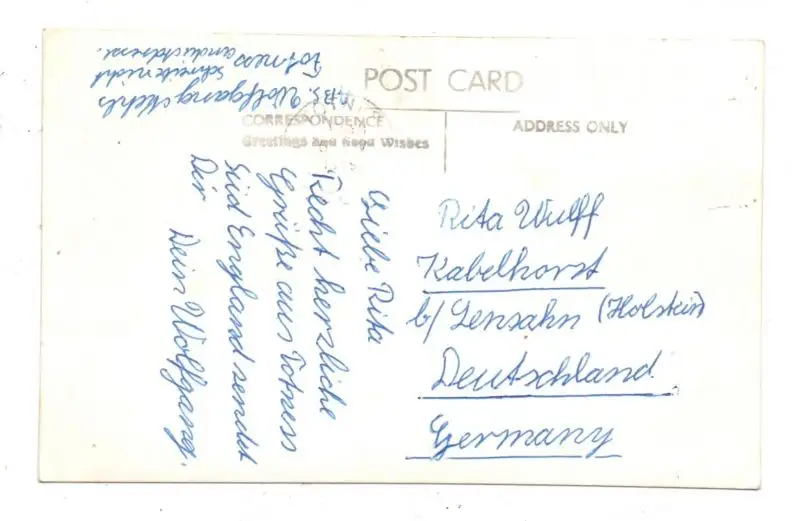 POST CARD
CORRESPONDENCE
Greetings and Good Wishes
ADDRESS ONLY
Liebe Rita
Recht herzliche
Grüße aus Totness
Süd England sendet
Dir
Dein Wolfgang.
Rita Wulff
Kabelhorst
b/ Lensahn (Holstein)
Deutschland
Germany
Wolfgang
schreibe nicht
Totness